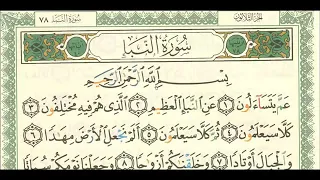 سُورَةُ النَّبَإِ ٧٨
الجُزْءُ الثَّلَاثُونَ
سُورَةُ النَّبَإِ
بِسْمِ اللَّهِ الرَّحْمَٰنِ الرَّحِيمِ
عَمَّ يَتَسَاءَلُونَ ١ عَنِ النَّبَإِ الْعَظِيمِ ٢ الَّذِي هُمْ فِيهِ مُخْتَلِفُونَ ٣
كَلَّا سَيَعْلَمُونَ ٤ ثُمَّ كَلَّا سَيَعْلَمُونَ ٥ أَلَمْ نَجْعَلِ الْأَرْضَ مِهَادًا ٦
وَالْجِبَالَ أَوْتَادًا ٧ وَخَلَقْنَاكُمْ أَزْوَاجًا ٨ وَجَعَلْنَا نَوْمَكُمْ سُبَاتًا